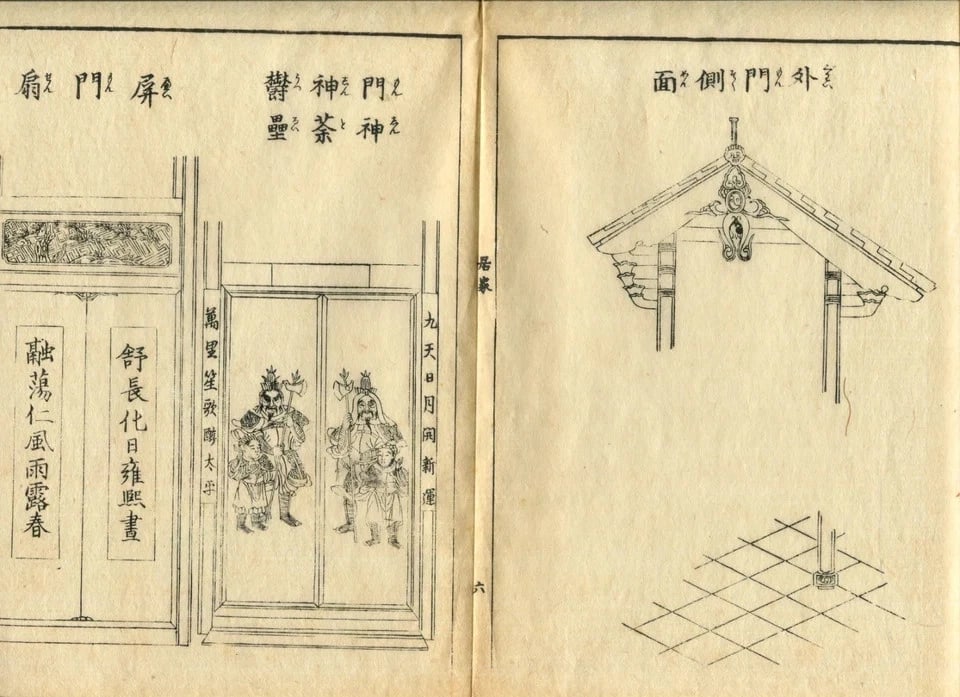 外門側面
居家
六
門神
神荼
欝壘
九天日月開新運
萬里笙歌醉太平
屏門扇
舒長化日雍熙晝
融蕩仁風雨露春